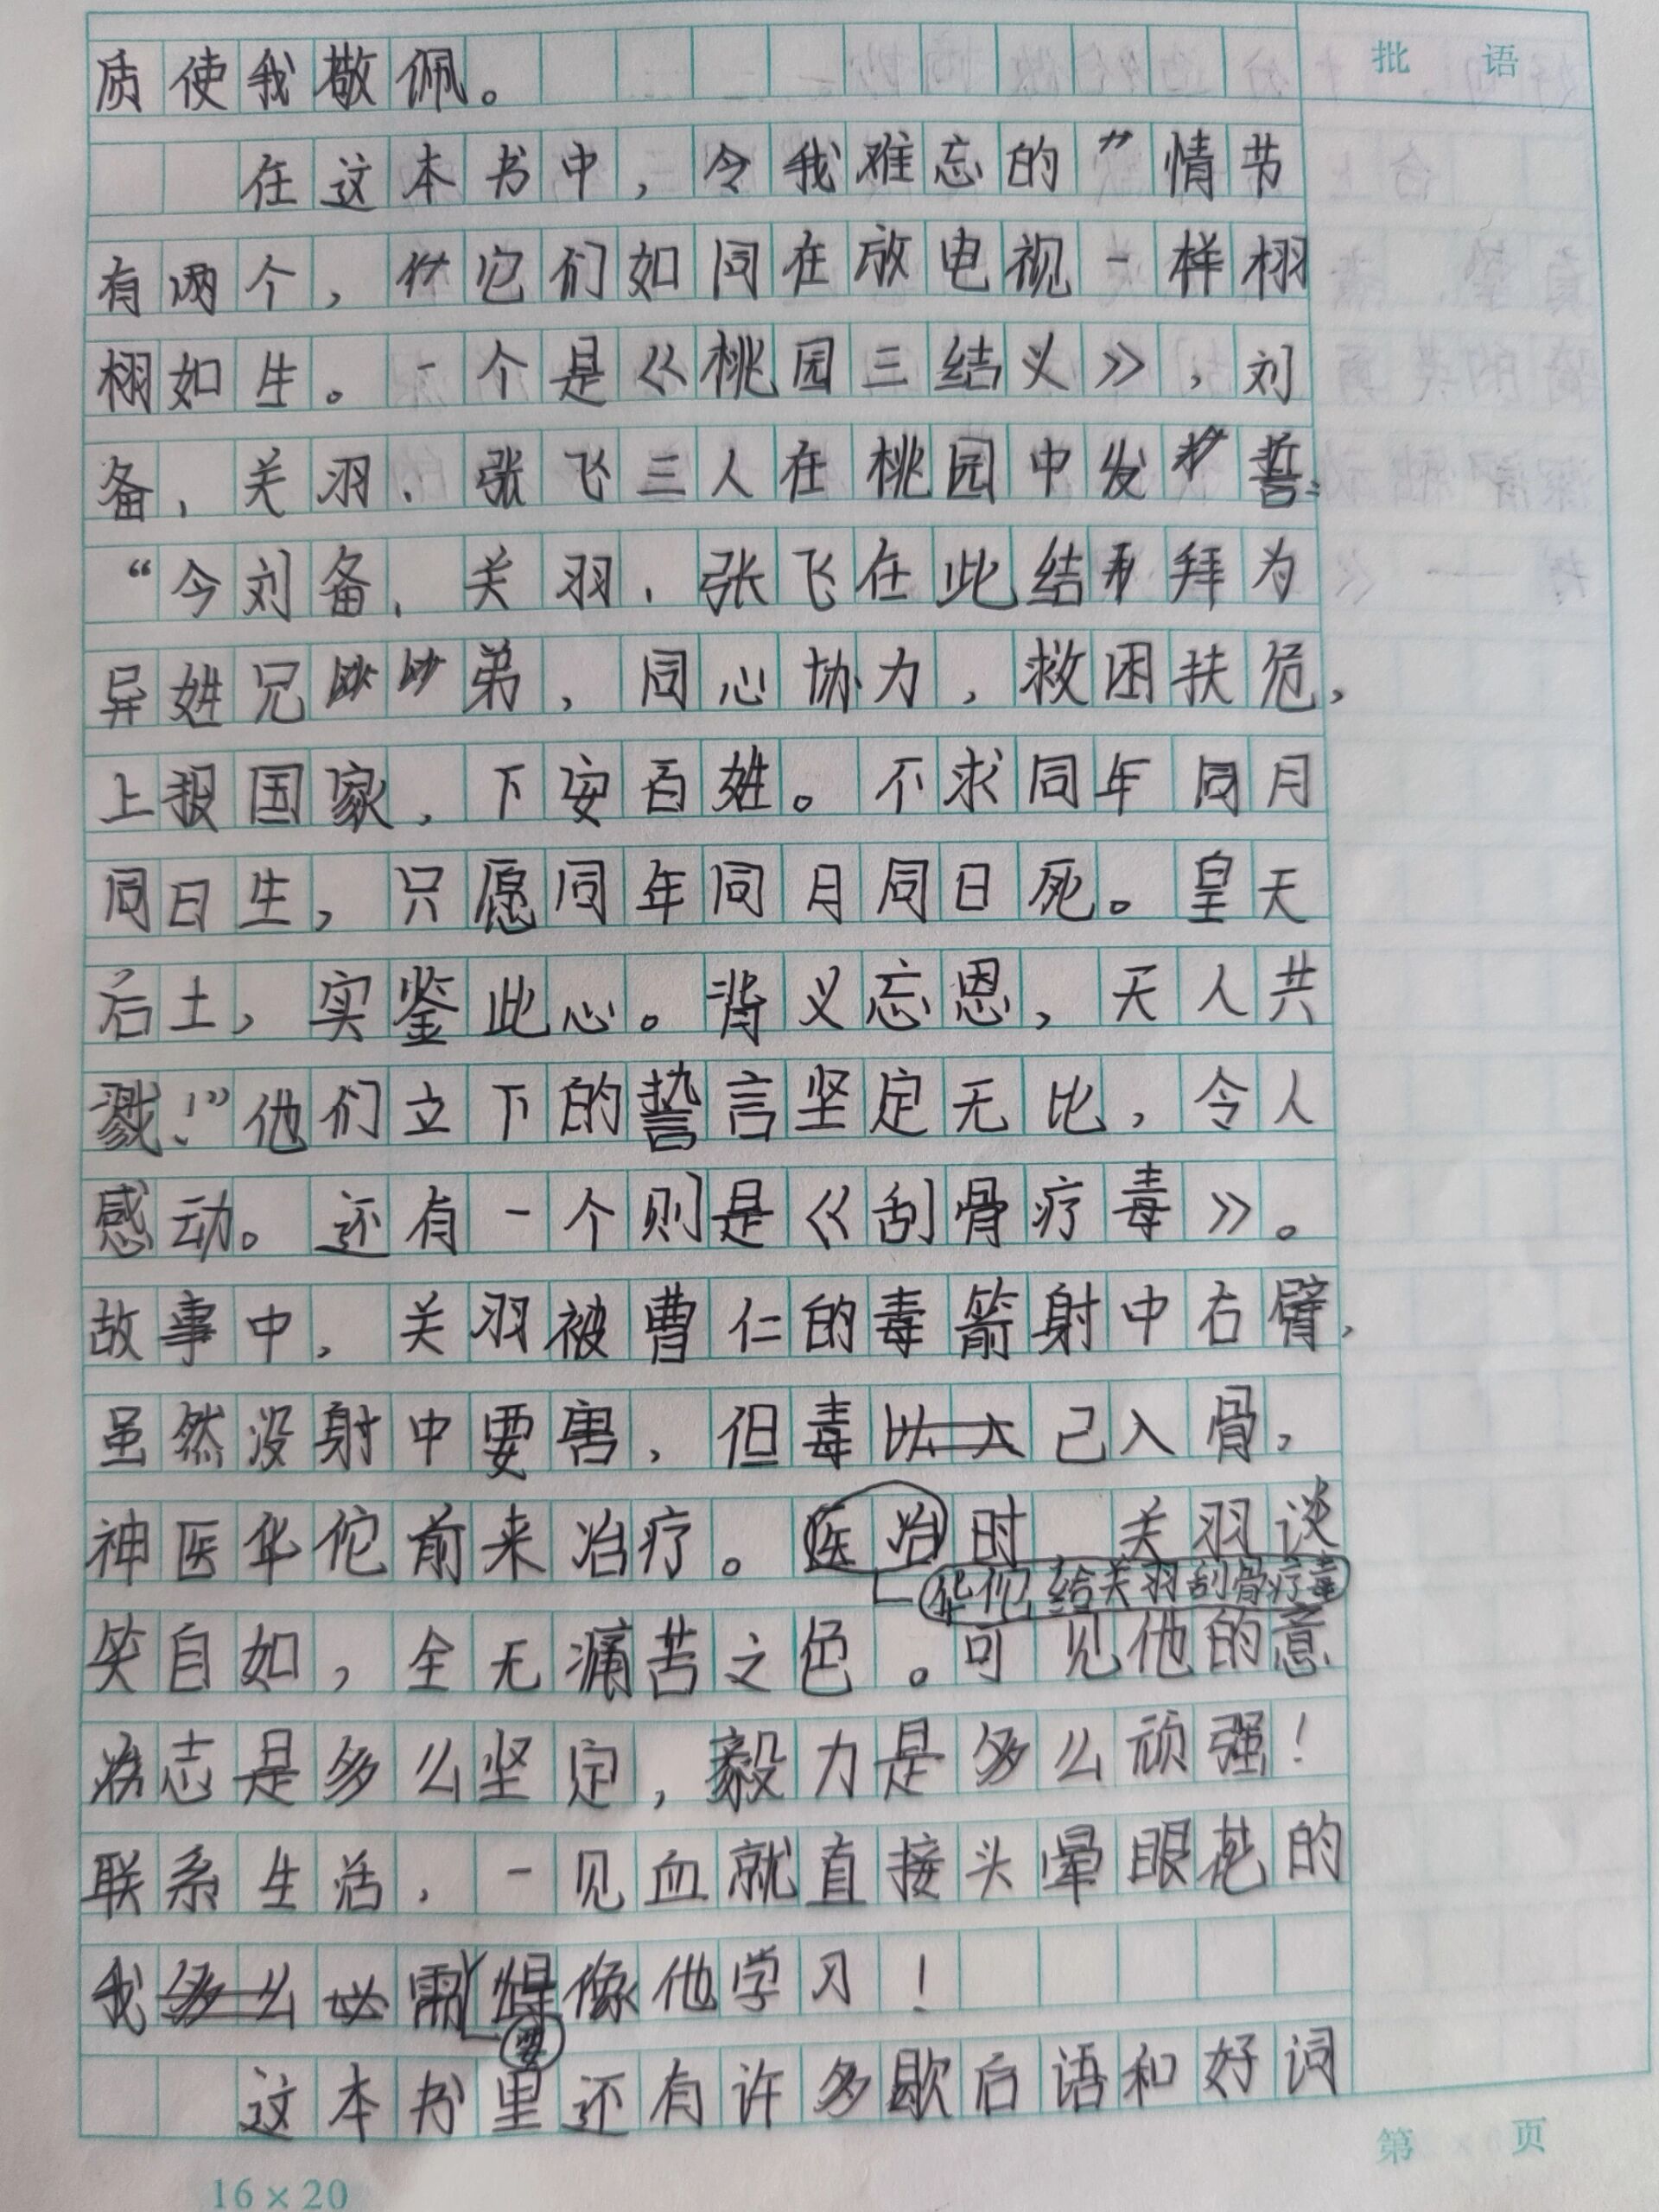 批 语
质使我敬佩。
在这本书中，令我难忘的情节
有两个，它们如同在放电视一样栩
栩如生。一个是《桃园三结义》，刘
备、关羽、张飞三人在桃园中发誓：
“今刘备、关羽、张飞在此结拜为
异姓兄弟，同心协力，救困扶危，
上报国家，下安百姓。不求同年同月
同日生，只愿同年同月同日死。皇天
后土，实鉴此心。背义忘恩，天人共
戮！”他们立下的誓言坚定无比，令人
感动。还有一个则是《刮骨疗毒》。
故事中，关羽被曹仁的毒箭射中右臂，
虽然没射中要害，但毒已入骨，
神医华佗前来治疗。医治时 关羽谈
华佗给关羽刮骨疗毒
笑自如，全无痛苦之色。可见他的意
志是多么坚定，毅力是多么顽强！
联系生活，一见血就直接头晕眼花的
我需像他学习！
要
这本书里还有许多歇后语和好词
第 页
16×20